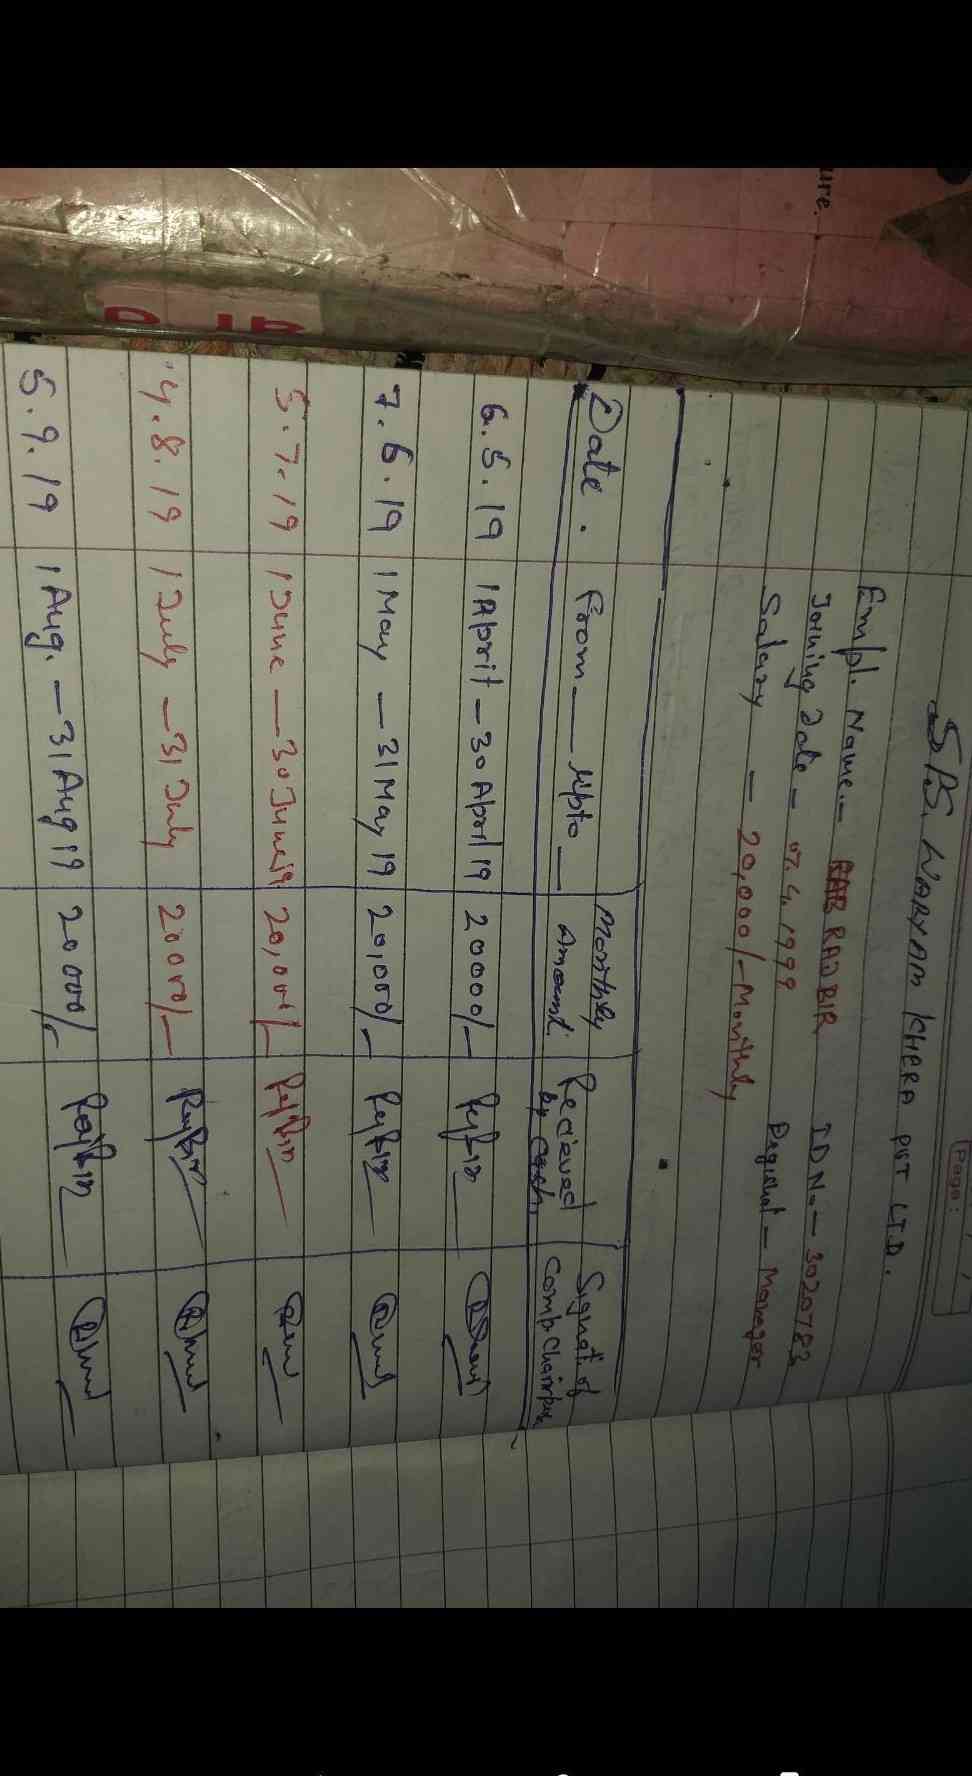 Page:
SPS. WARYAM KHERA PVT LTD.
Empl. Name - RAJBIR IDNo - 3020783
Joining Date - 07.4.1999 - Manager
Salary - 20,000/- Monthly
Date. From — Upto — Monthly Amount Recieved by Cash, Signat. of Comp
6.5.19 1 April - 30 April 19 20000/-
7.6.19 1 May - 31 May 19 20,000/-
5.7.19 1 June - 30 June 19 20,000/-
4.8.19 1 July - 31 July 20000/-
5.9.19 1 Aug. - 31 Aug 19 20000/-
ure.